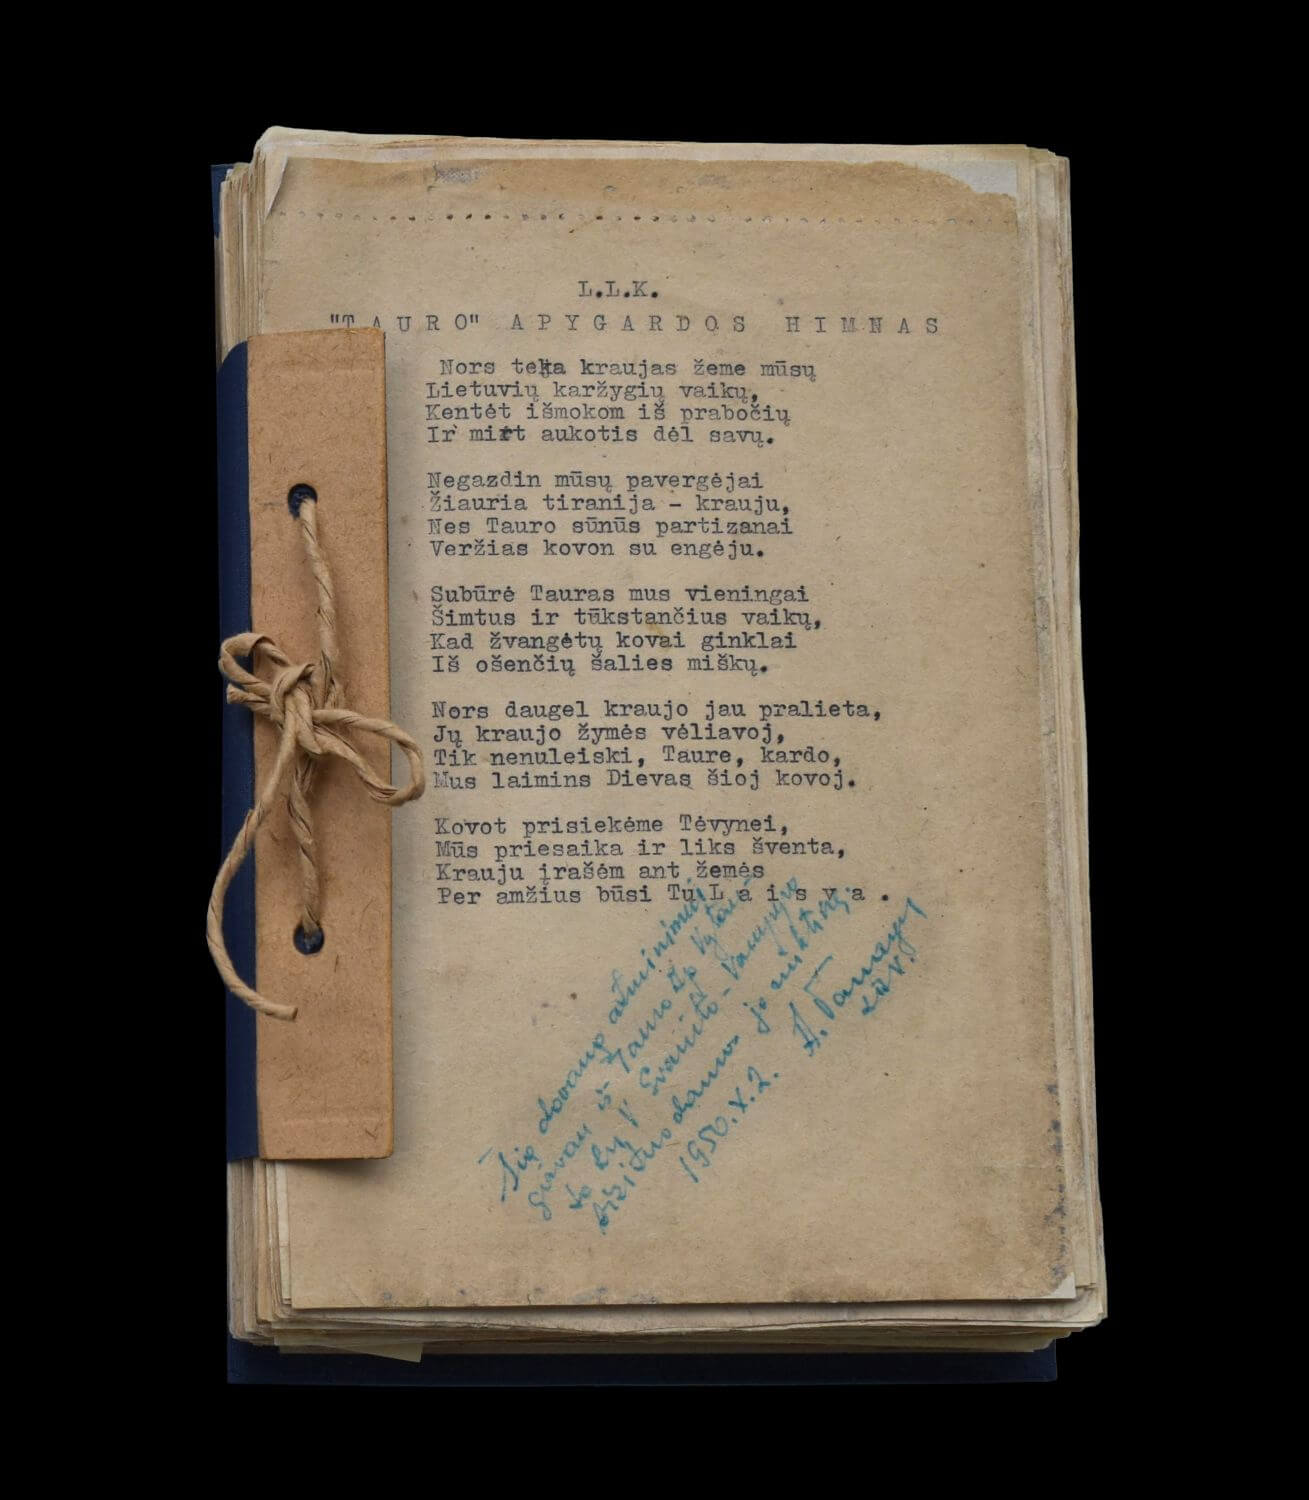 L.L.K.
"TAURO" APYGARDOS HIMNAS
Nors teka kraujas žeme mūsų
Lietuvių karžygių vaikų,
Kentėt išmokom iš prabočių
Ir mirt aukotis dėl savų.
Negazdin mūsų pavergėjai
Žiauria tiranija - krauju,
Nes Tauro sūnūs partizanai
Veržias kovon su engėju.
Subūrė Tauras mus vieningai
Šimtus ir tūkstančius vaikų,
Kad žvangėtų kovai ginklai
Iš ošenčių šalies miškų.
Nors daugel kraujo jau pralieta,
Jų kraujo žymės vėliavoj,
Tik nenuleiski, Taure, kardo,
Mus laimins Dievas šioj kovoj.
Kovot prisiekėme Tėvynei,
Mūs priesaika ir liks šventa,
Krauju įrašėm ant žemės
Per amžius būsi Tu L a i s v a .
Šią dovaną atminimui
gavau iš Tauro
jo
1950.X.2.